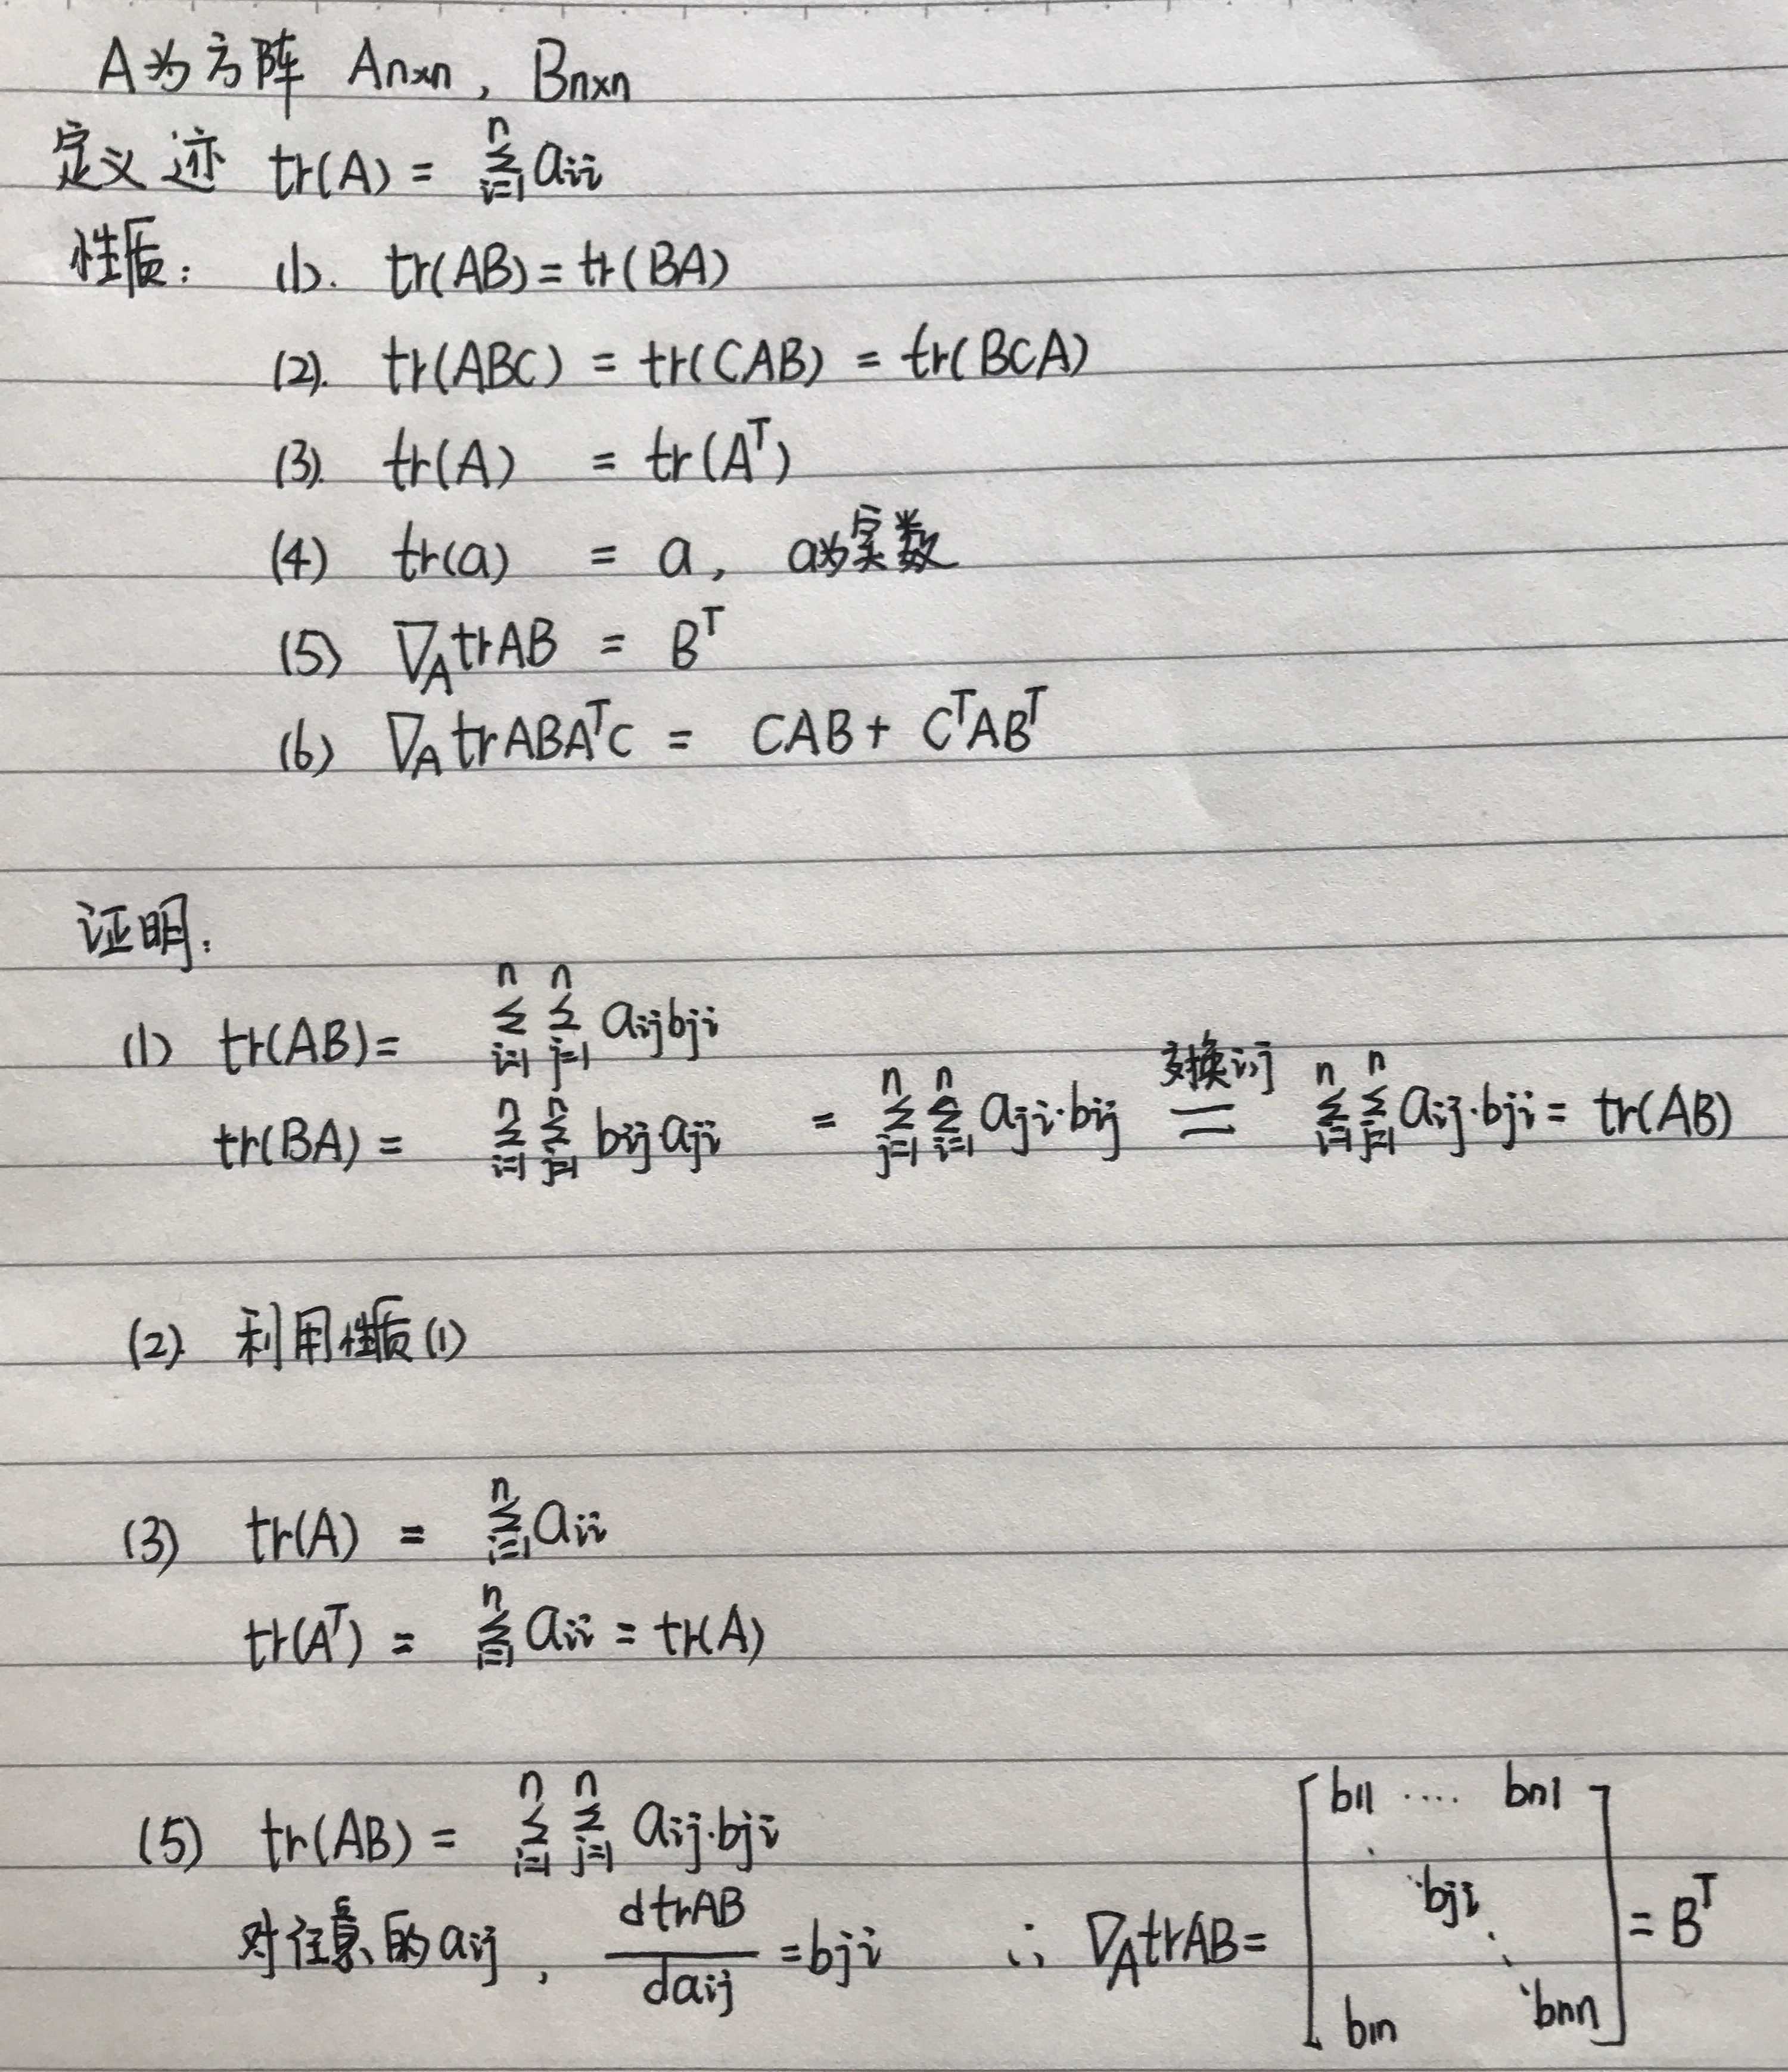 A为方阵 Anxn , Bnxn
定义 迹 tr(A) = ∑_{i=1}^{n} aii
性质: (1). tr(AB) = tr(BA)
(2). tr(ABC) = tr(CAB) = tr(BCA)
(3). tr(A) = tr(A^T)
(4) tr(a) = a, a为实数
(5) ∇_A trAB = B^T
(6) ∇_A trABA^TC = CAB + C^TAB^T
证明:
(1) tr(AB) = ∑_{i=1}^{n} ∑_{j=1}^{n} aijbji
tr(BA) = ∑_{i=1}^{n} ∑_{j=1}^{n} bijaji = ∑_{j=1}^{n} ∑_{i=1}^{n} aji·bij 交换i,j = ∑_{i=1}^{n} ∑_{j=1}^{n} aij·bji = tr(AB)
(2). 利用性质(1)
(3) tr(A) = ∑_{i=1}^{n} aii
tr(A^T) = ∑_{i=1}^{n} aii = tr(A)
(5) tr(AB) = ∑_{i=1}^{n} ∑_{j=1}^{n} aij·bji
对任意的aij , dtrAB/daij = bji ∴ ∇_A trAB = [b11 .... bn1
bji
b1n bnn] = B^T